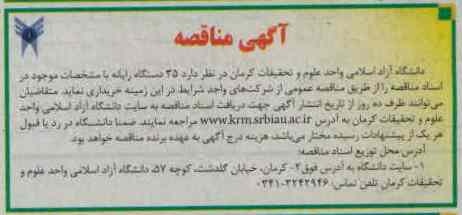 آگهی مناقصه
دانشگاه آزاد اسلامی واحد علوم و تحقیقات کرمان در نظر دارد ۳۵ دستگاه رایانه با مشخصات موجود در
اسناد مناقصه را از طریق مناقصه عمومی از شرکت‌های واجد شرایط در این زمینه خریداری نماید. متقاضیان
می‌توانند ظرف ده روز از تاریخ انتشار آگهی جهت دریافت اسناد مناقصه به سایت دانشگاه آزاد اسلامی واحد
علوم و تحقیقات کرمان به آدرس www.krm.srbiau.ac.ir مراجعه نمایند. ضمنا دانشگاه در رد یا قبول
هر یک از پیشنهادات رسیده مختار می‌باشد، هزینه درج آگهی به عهده برنده مناقصه خواهد بود.
آدرس محل توزیع اسناد مناقصه:
۱- سایت دانشگاه به آدرس فوق ۲- کرمان، خیابان گلدشت، کوچه ۵۷، دانشگاه آزاد اسلامی واحد علوم و
تحقیقات کرمان تلفن تماس: ۳۲۴۲۹۴۶-۰۳۴۱